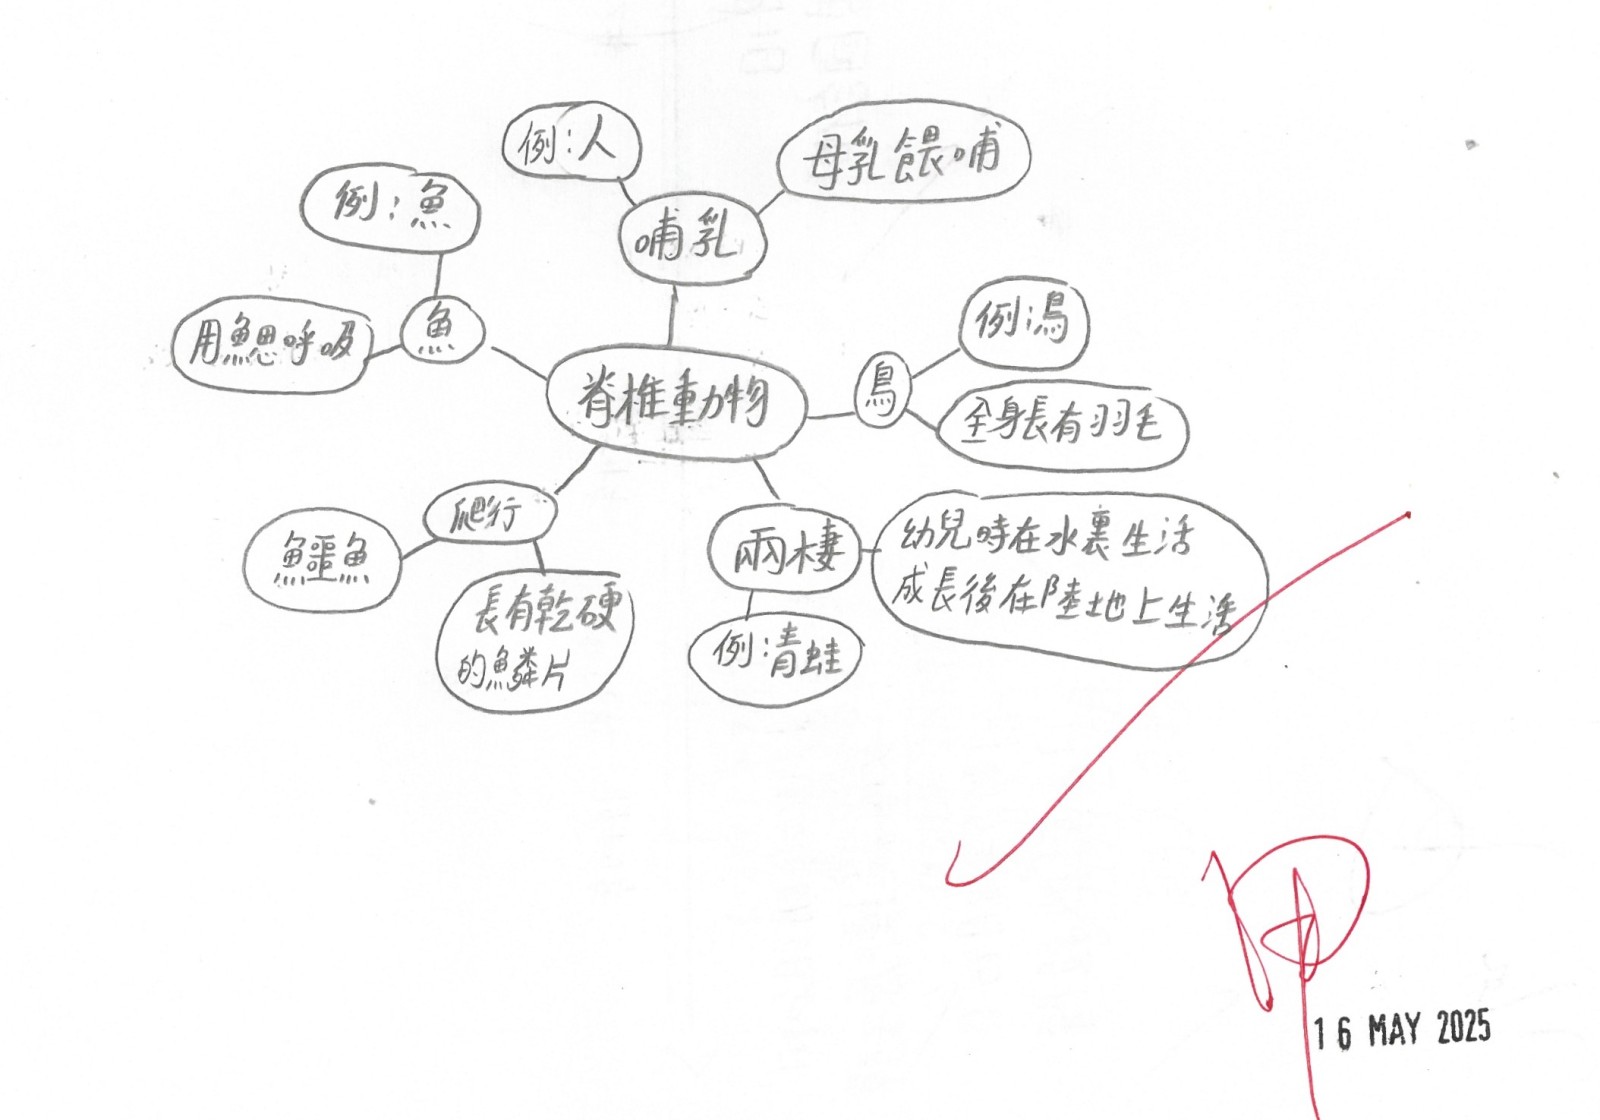 例:人
母乳餵哺
例:魚
哺乳
用鰓呼吸
魚
例:鳥
脊椎動物
鳥
全身長有羽毛
爬行
鱷魚
長有乾硬
的鱗片
兩棲
幼兒時在水裏生活
成長後在陸地上生活
例:青蛙
16 MAY 2025